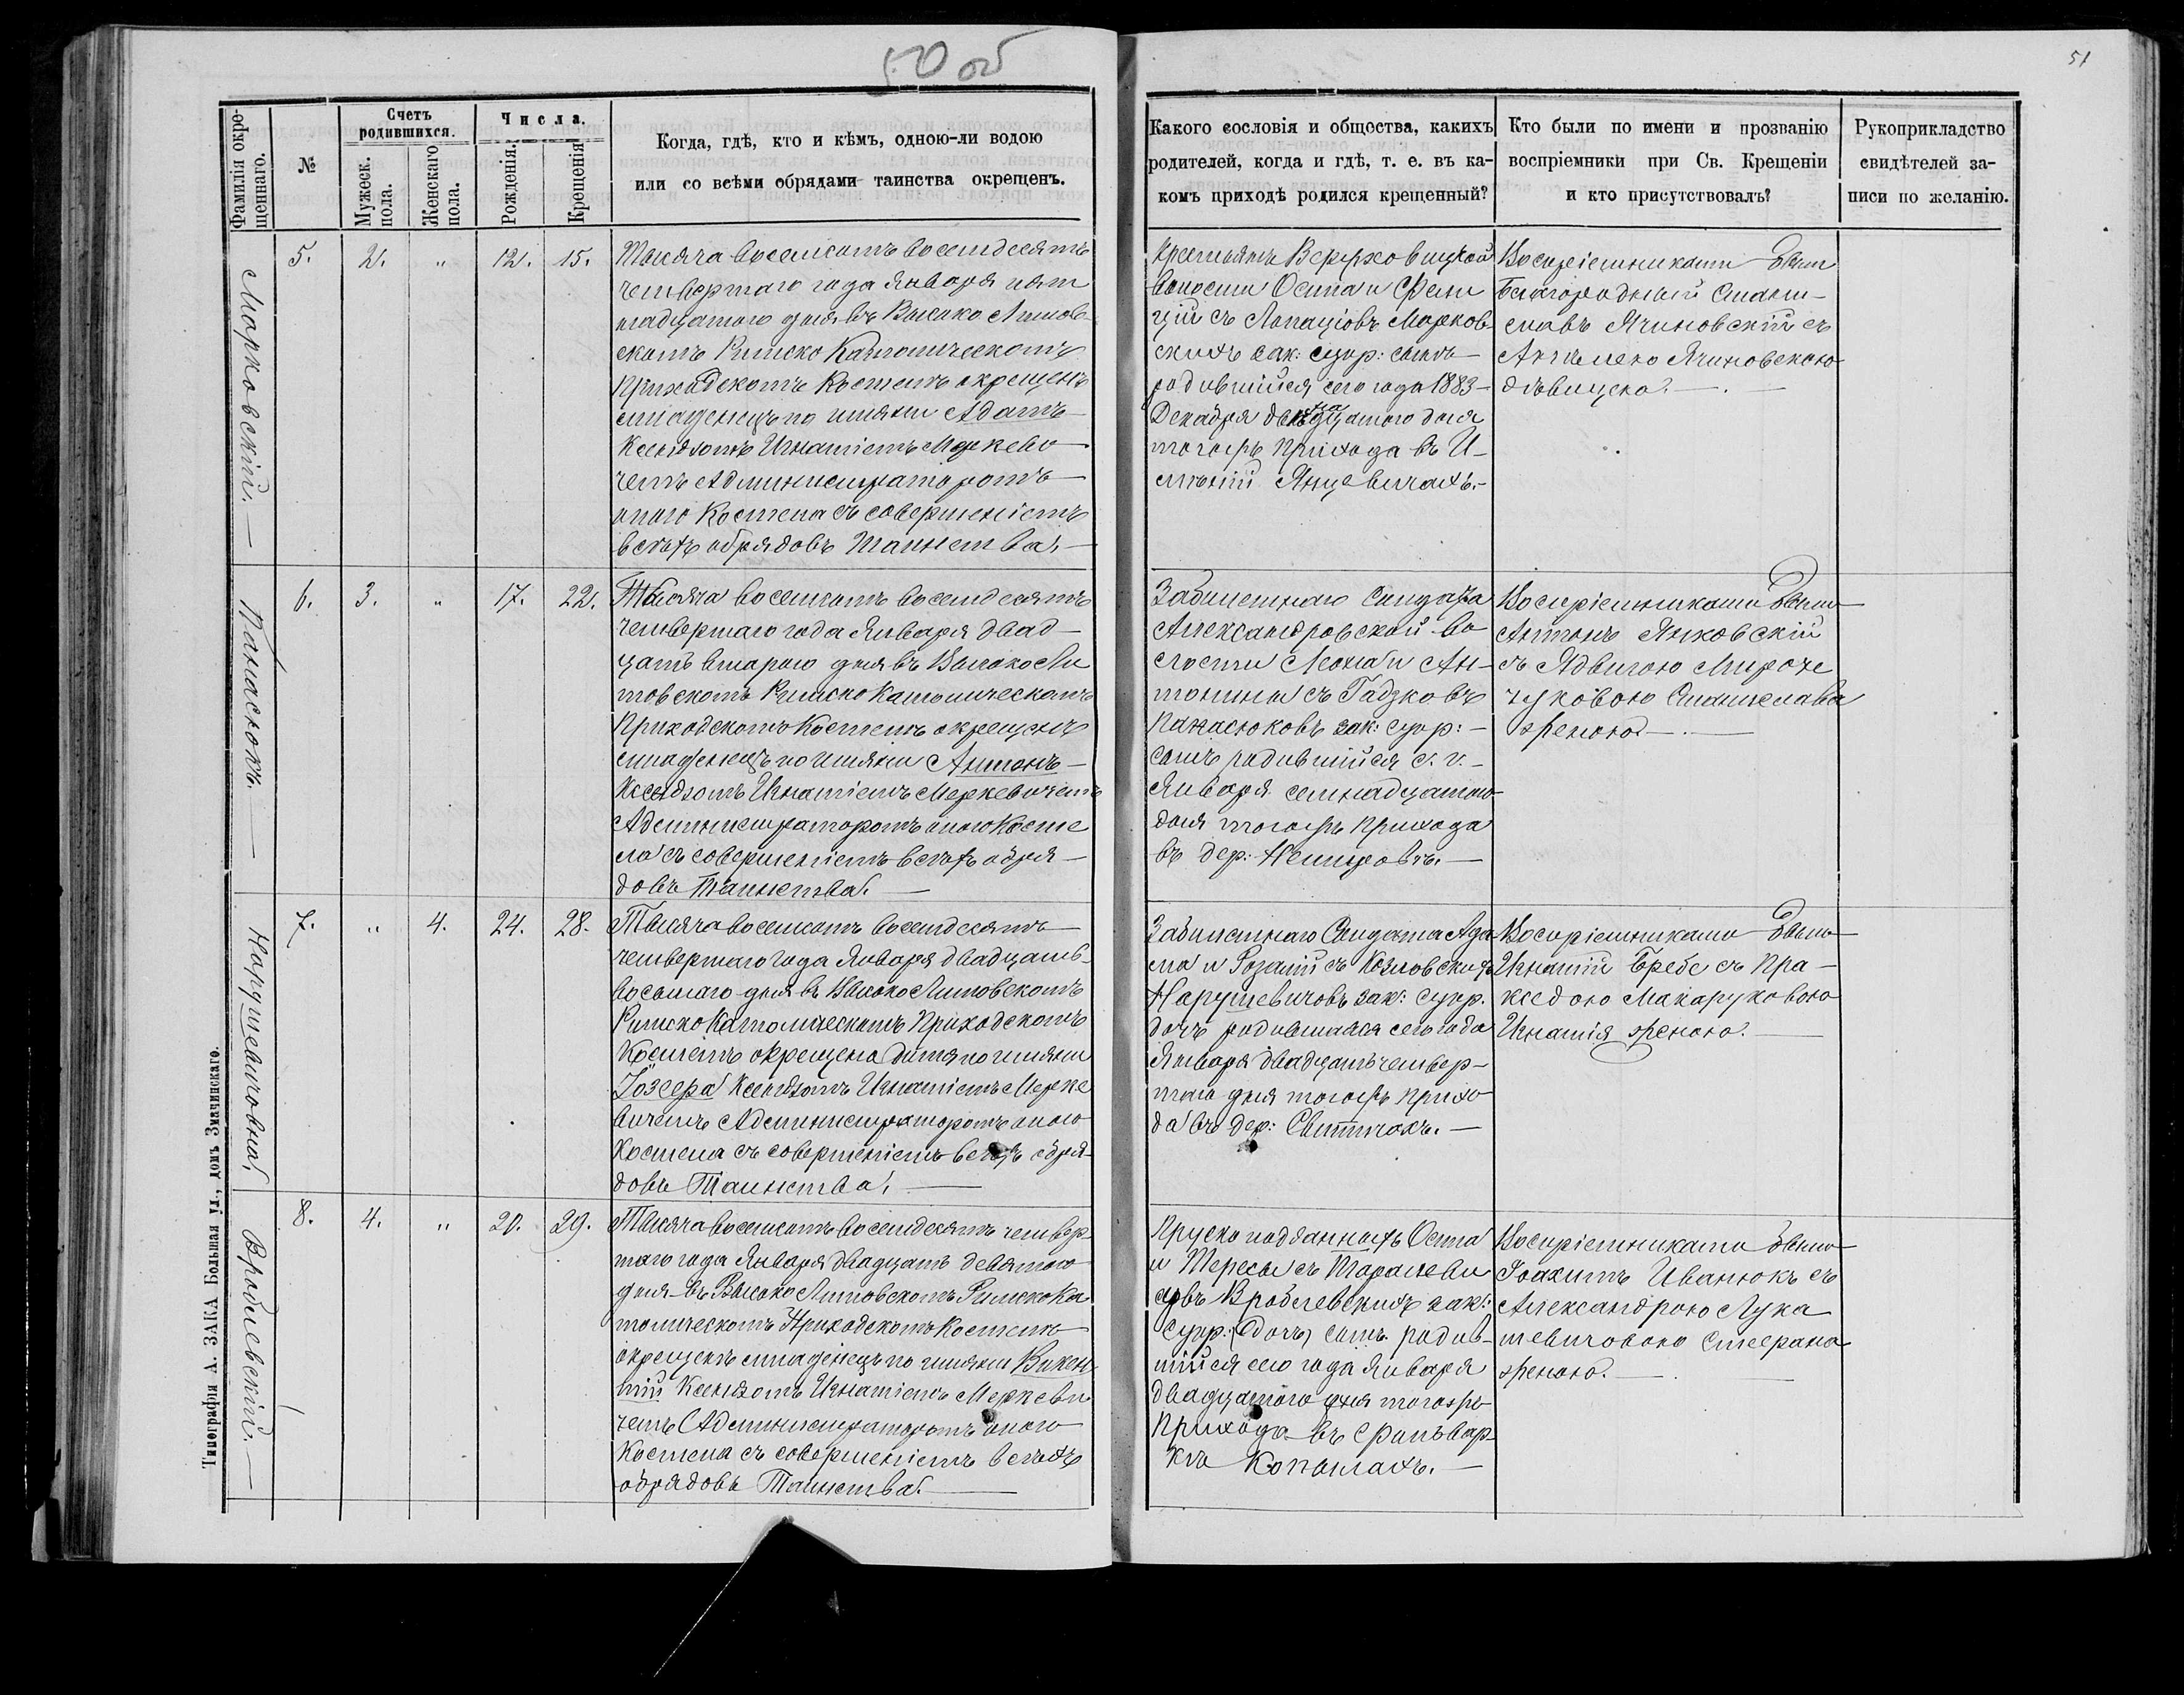 50 об
51
Фамилія окрещеннаго.
№
Счетъ родившихся.
Мужеск. пола.
Женскаго пола.
Числа.
Рожденія.
Крещенія
Когда, гдѣ, кто и кѣмъ, одною-ли водою
или со всѣми обрядами таинства окрещенъ.
Какого сословія и общества, какихъ
родителей, когда и гдѣ, т. е. въ ка-
комъ приходѣ родился крещенный?
Кто были по имени и прозванію
воспріемники при Св. Крещеніи
и кто присутствовалъ?
Рукоприкладство
свидѣтелей за-
писи по желанію.
Марковскій.
5. 2. " 12. 15.
Тысяча восемсотъ восемдесятъ
четвертаго года Января пят
надцатого дня въ Высоко Литов
скомъ Римско Католическомъ
Приходскомъ Костелѣ окрещенъ
младенецъ по имяни Адамъ
Ксендзомъ Игнатіемъ Меркеви
чемъ Администраторомъ
оного Костела съ совершеніемъ
всѣхъ обрядовъ Таинства.
Крестьянъ Верховицкой
волости Осипа и Фели
ціи съ Лопаціовъ Марков-
скихъ зак: супр: сынъ
родившійся сего года 1883
Декабря двенадцатого дня
тогожъ прихода въ И-
мѣніи Янцевичахъ.
Воспріемниками были
Благородный Стани-
славъ Ячиновскій съ
Анѣлею Ячиновскою
дѣвицею.
Панасюкъ.
6. 3. " 17. 22.
Тысяча восемсотъ восемдесятъ
четвертаго года Января двад-
цатъ втарого дня въ Высоко Ли
товскомъ Римско Католическомъ
Приходскомъ Костелѣ окрещенъ
младенецъ по имяни Антонъ
Ксендзомъ Игнатіемъ Меркевичемъ
Администраторомъ оного Косте
ла съ совершеніемъ всѣхъ обря-
довъ Таинства.
Забилетнаго Солдата
Александровской во
лости Леона и Ан-
тонины съ Гадзковъ
Панасюковъ зак: супр:
сынъ родившійся с. г.
Января семнадцатого
дня тогожъ прихода
въ дер: Немировѣ.
Воспріемниками были
Антонъ Янковскій
съ Ядвигою Мироне
чуковою Станислава
женою.
Нарушевичовна.
7. " 4. 24. 28.
Тысяча восемсотъ восемдесятъ
четвертаго года Января двадцатъ
восьмаго дня въ Высоко Литовскомъ
Римско Католическомъ Приходскомъ
Костелѣ окрещено дитя по имяни
Іозефа Ксендзомъ Игнатіемъ Мерке
вичемъ Администраторомъ оного
Костела съ совершеніемъ всѣхъ обря-
довъ Таинства.
Забилетнаго Солдата Ада
ма и Розаліи съ Козловскихъ
Нарушевичовъ зак: супр.
дочъ родившаяся сего года
Января двадцатъ четвер-
таго дня тогожъ прихо
да въ дер: Свитичахъ.
Воспріемниками были
Игнатій Бребе съ Пра-
кседою Макаруковою
Игнатія женою.
Вроблевскій.
8. 4. " 20. 29.
Тысяча восемсотъ восемдесятъ четвер
таго года Января двадцатъ девятого
дня въ Высоко Литовскомъ Римско Ка
толическомъ Приходскомъ Костелѣ
окрещенъ младенецъ по имяни Викен
тій Ксендзомъ Игнатіемъ Меркеви
чемъ Администраторомъ оного
Костела съ совершеніемъ всѣхъ
обрядовъ Таинства.
Пруско подданныхъ Осипа
и Тересы съ
Вроблевскихъ зак:
супр: (дочъ) сынъ родив-
шійся сего года Января
двадцатого дня тогожъ
Прихода въ фольвар-
кѣ Копылахъ.
Воспріемниками были
Іоахимъ Иванюкъ съ
Александрою Лука
шевичовою Стефана
женою.
Типографія А. ЗАКА Большая ул., домъ Змачинскаго.